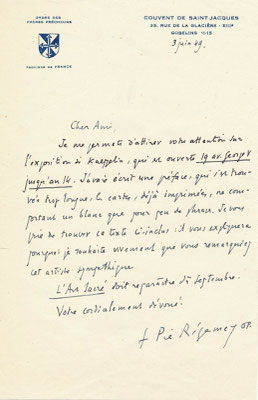 ORDRE DES
FRÈRES PRÊCHEURS
PROVINCE DE FRANCE
COUVENT DE SAINT-JACQUES
35, RUE DE LA GLACIÈRE - XIIIe
GOBELINS
3 juin 49.
Cher Ami,
Je me permets d'attirer votre attention sur
l'exposition de Kaeppelin, qui est ouverte 19 av. George V
jusqu'au 14. J'avais écrit une préface, qui s'est trou-
vée trop longue, les cartes, déjà imprimées, ne com-
portant un blanc que pour peu de phrases. Je vous
prie de trouver ce texte ci-inclus : il vous expliquera
pourquoi je souhaite vivement que vous remarquiez
cet artiste sympathique.
L'Art Sacré doit reparaître dès Septembre.
Votre cordialement dévoué.
f Pie Régamey op.